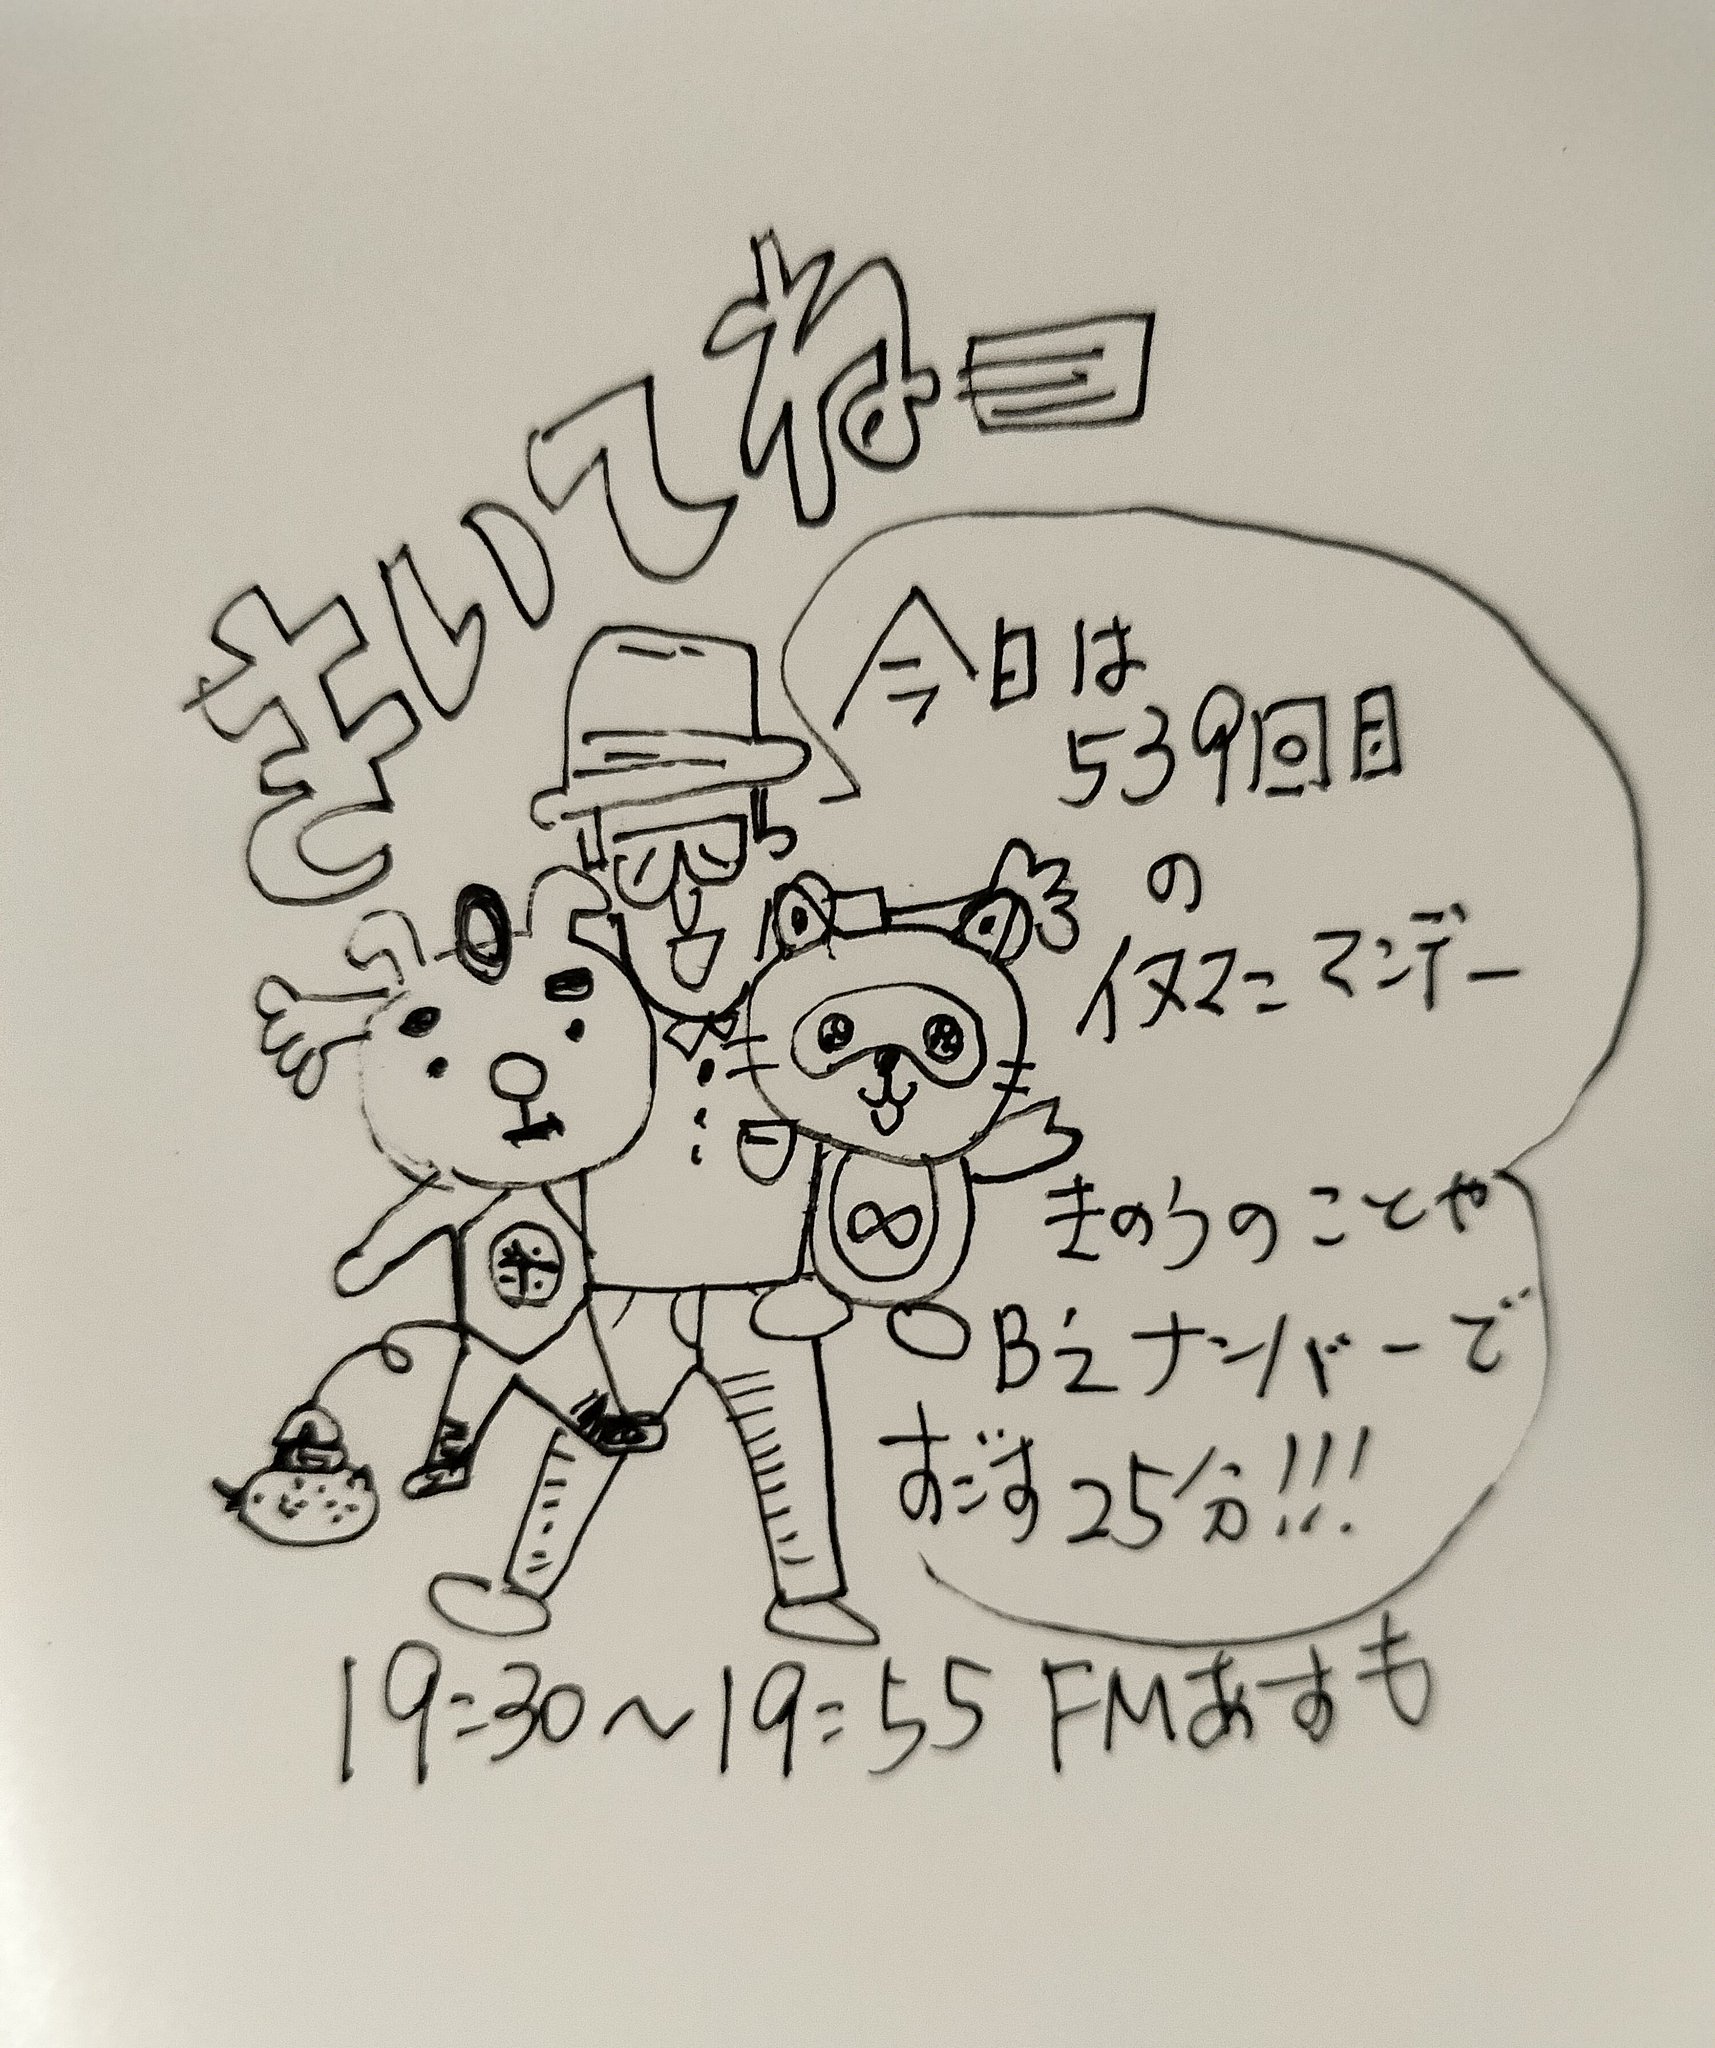 きいてねー
今日は
539回目
の
イヌマニマンデー
きのうのことや
B'zナンバーで
すごす25分!!!
19:30〜19:55 FMあすも